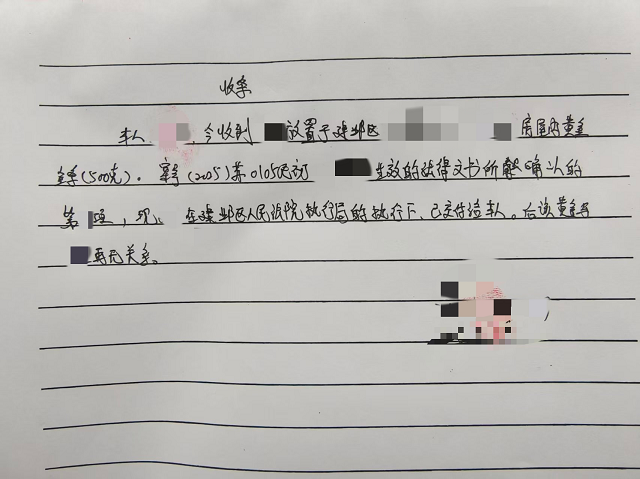 收条
本人 ,今收到 放置于建邺区 房屋内黄金
(500克)。案号(2025)苏0105民初 生效的法律文书所 确认的
第 项, 在建邺区人民法院执行局的执行下,已交付给本人。后该黄金与
再无关系。